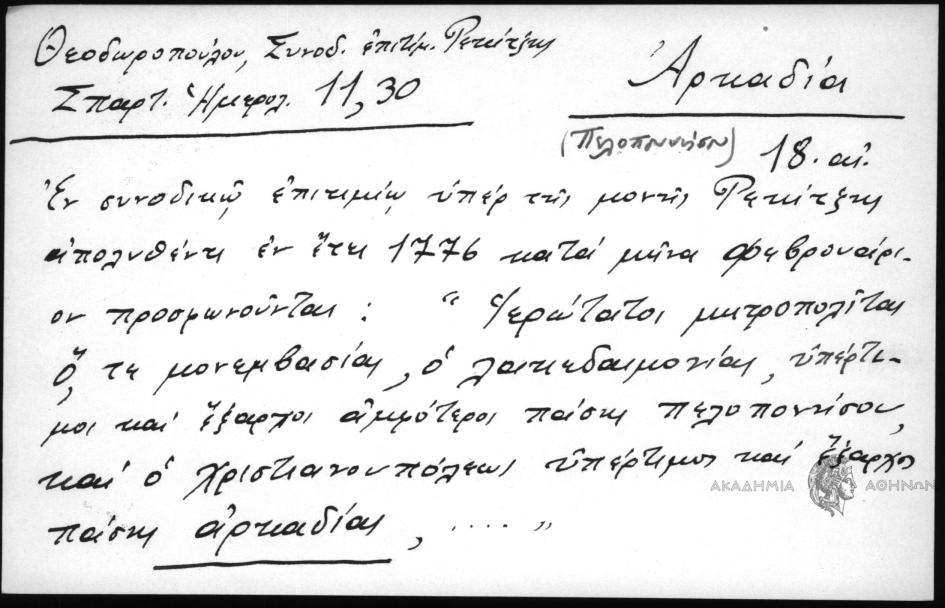 Θεοδωροπούλου, Συνοδ. ἐπιτίμ. Ρεκίτζης
Σπαρτ. Ἡμερολ. 11,30
Ἀρκαδία
(Πελοποννήσου)
18. αἰ.
Ἐν συνοδικῷ ἐπιτιμίῳ ὑπέρ τῆς μονῆς Ρεκίτζης
ἀπολυθέντι ἐν ἔτει 1776 κατά μῆνα Φεβρουάρι-
ον προσφωνοῦνται : " Ἱερώτατοι μητροπολῖται
ὅ, τε μονεμβασίας, ὁ λακεδαιμονίας, ὑπέρτι-
μοι καί ἔξαρχοι ἀμφότεροι πάσης πελοποννήσου,
καί ὁ χριστιανουπόλεως ὑπέρτιμος καί ἔξαρχος
πάσης ἀρκαδίας, ..... "
ΑΚΑΔΗΜΙΑ ΑΘΗΝΩΝ